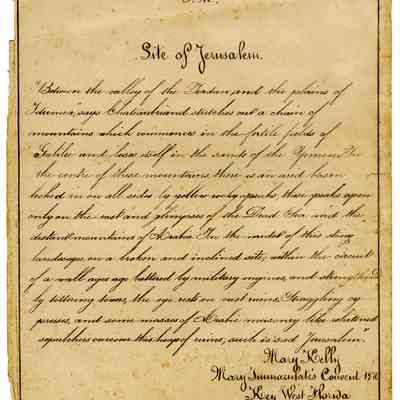 Site of Jerusalem.
"Between the valley of the Jordan and the plains of
Idumea," says Chateaubriand stretches out a chain of
mountains which commence in the fertile fields of
Galilee and loses itself in the sands of the Yemen. In
the centre of these mountains there is an arid basin
locked in on all sides by yellow rocky peaks; these peaks open
only on the east and glimpses of the Dead Sea and the
distant mountains of Arabia. In the midst of this stony
landscape on a broken and inclined site, within the circuit
of a wall ages ago battered by military engines, and strengthened
by tottering towers, the eye rests on vast ruins. Straggling cy
presses, and some masses of Arabic masonry like whitened
sepulchresover this heap of ruins, such is sad Jerusalem".
Mary Kelly
Mary Immaculate's Convent
Key West Florida